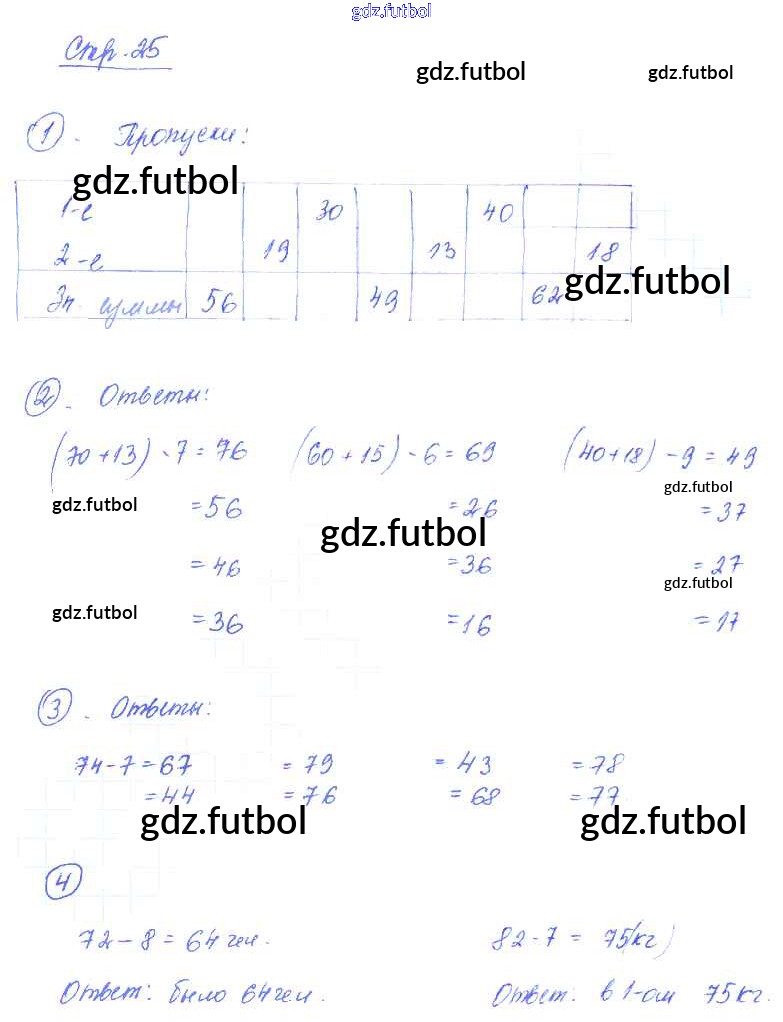 gdz.futbol
Стр. 25
gdz.futbol gdz.futbol
1. Пропуски:
gdz.futbol
1-е 30 40
2-е 19 13 18
gdz.futbol
Зн. суммы 56 49 62
2. Ответы:
(70+13)-7=76 (60+15)-6=69 (40+18)-9=49
gdz.futbol
gdz.futbol =56 =26 =37
gdz.futbol
=46 =36 =27
gdz.futbol
gdz.futbol =36 =16 =17
3. Ответы:
74-7=67 =79 =43 =78
=44 =76 =68 =77
gdz.futbol gdz.futbol
4
72-8=64 чел. 82-7=75(кг)
Ответ: было 64 чел. Ответ: в 1-ом 75 кг.